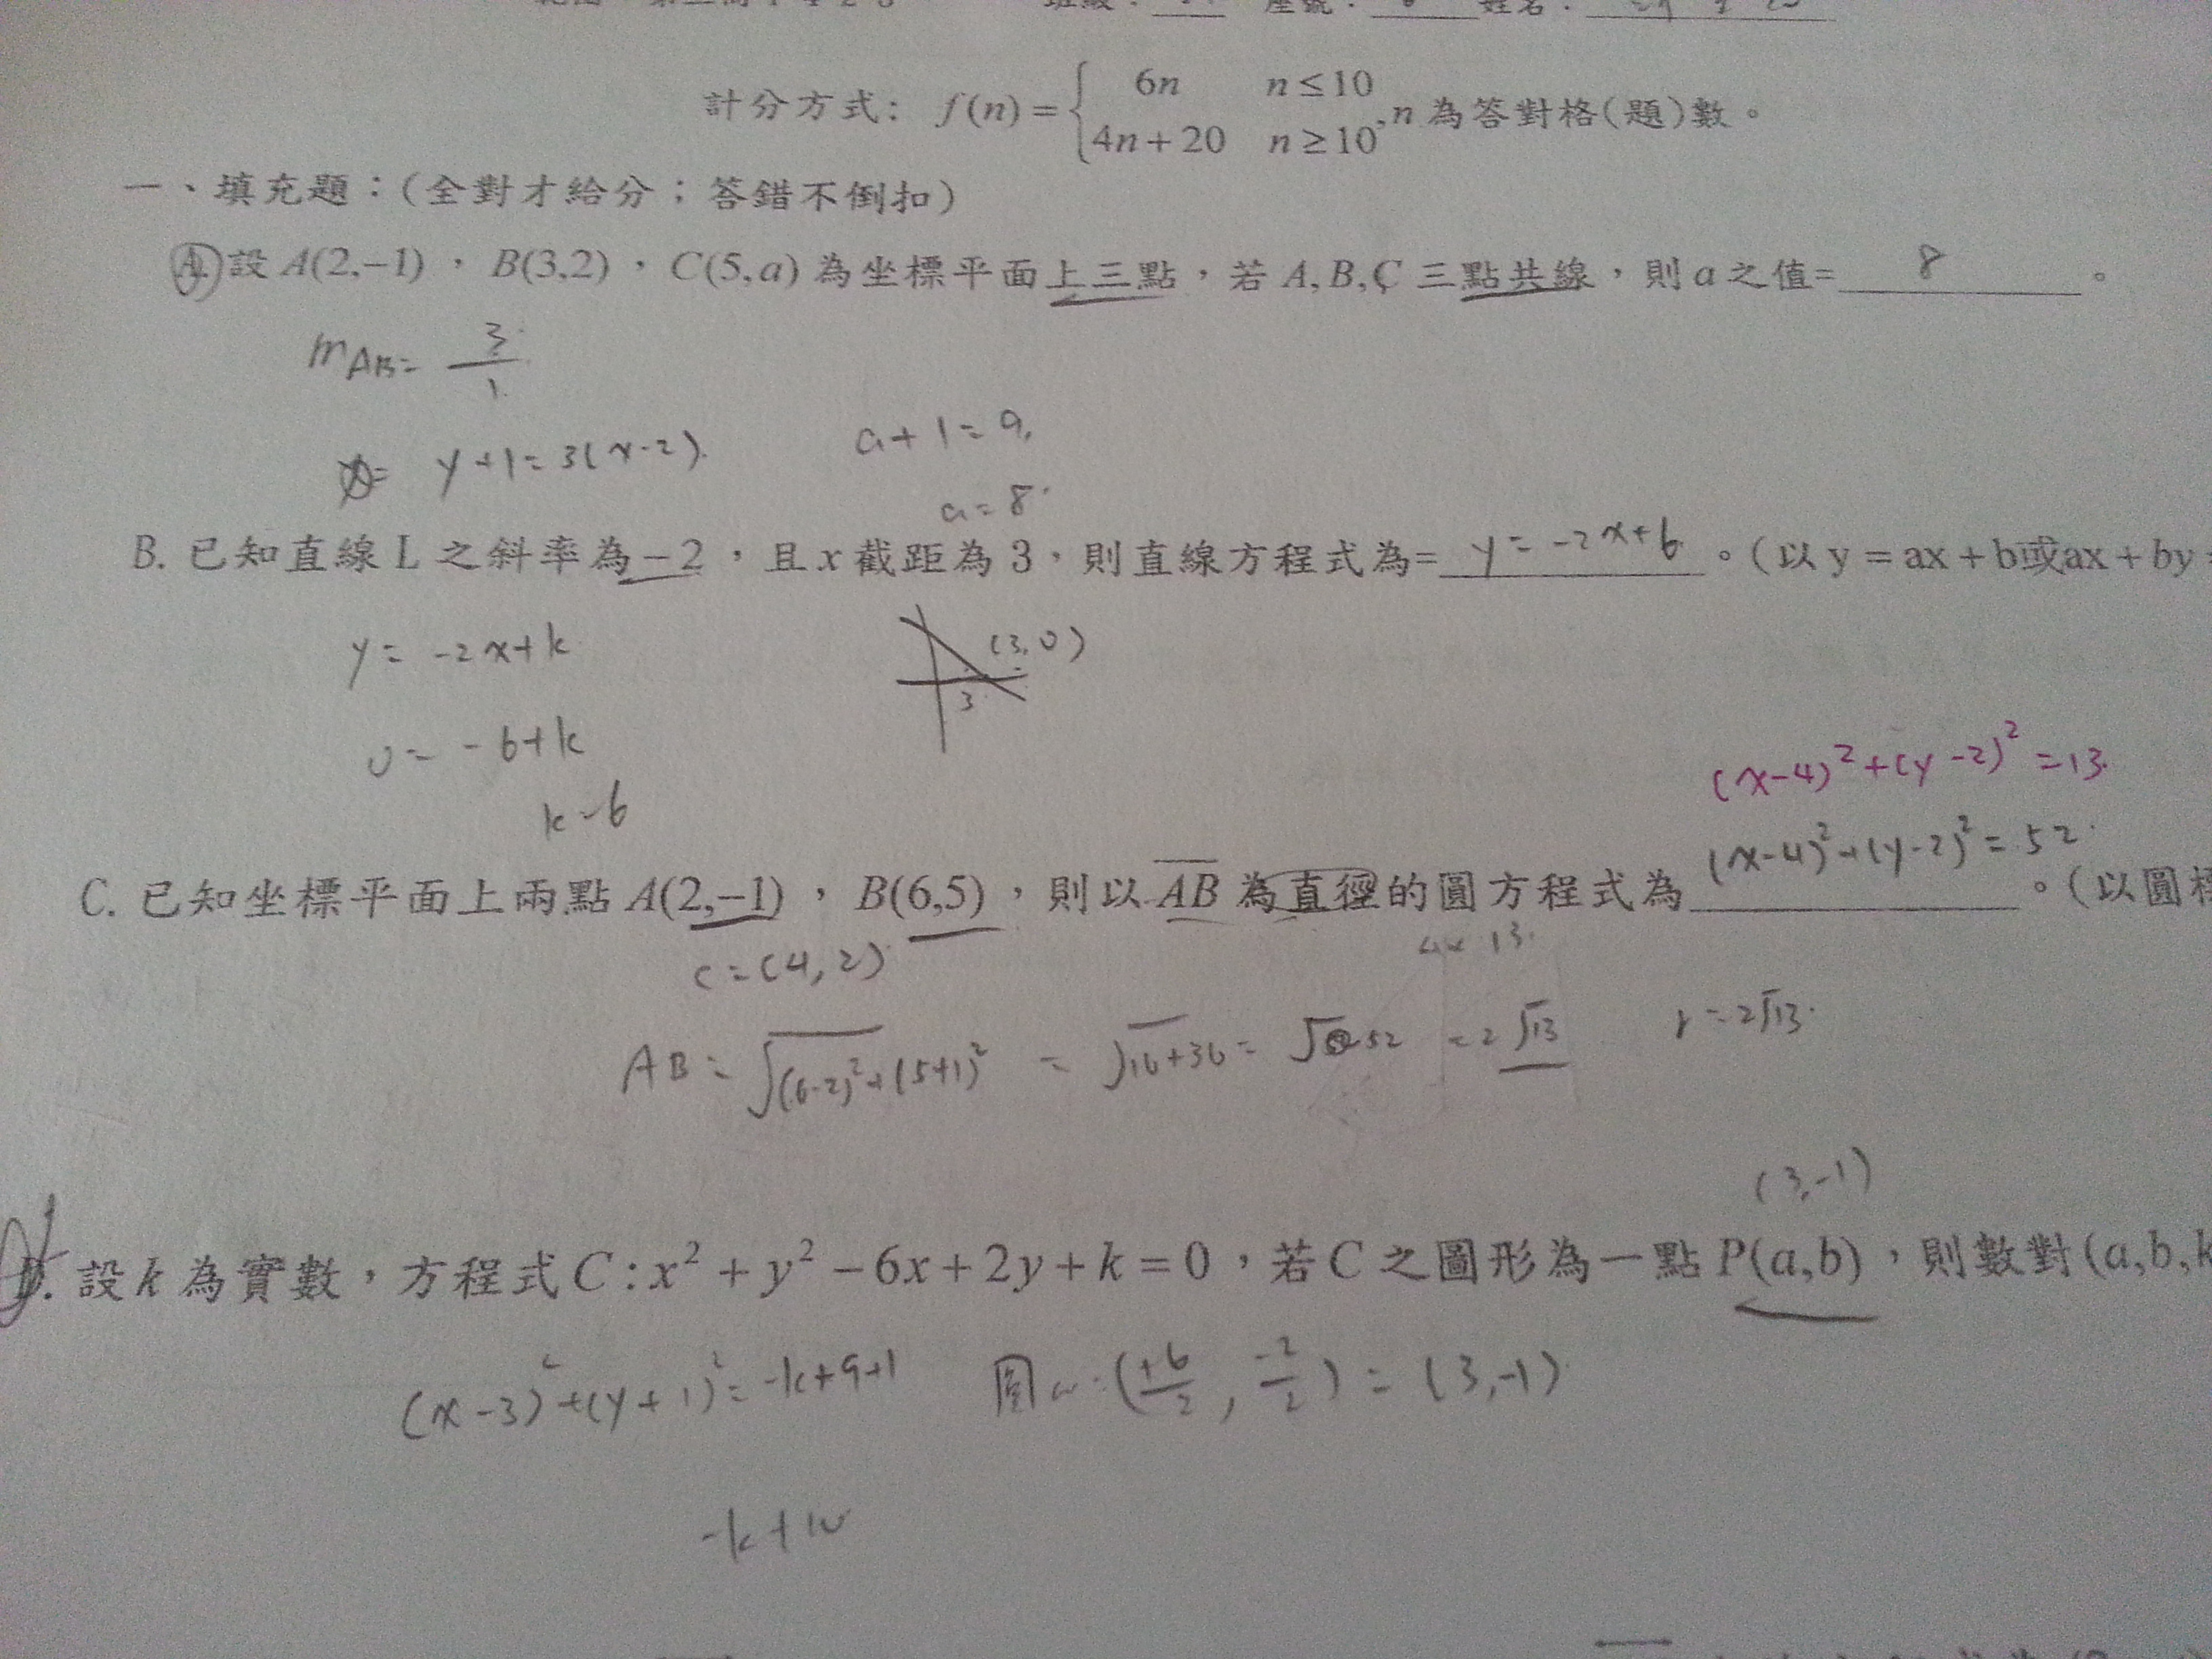 班級： 座號： 姓名：
計分方式: f(n) = { 6n n ≤ 10
4n + 20 n ≥ 10 , n 為答對格(題)數。
一、填充題：(全對才給分；答錯不倒扣)
A. 設 A(2,−1)，B(3,2)，C(5,a) 為坐標平面上三點，若 A,B,C 三點共線，則 a 之值= 8 。
m AB = 3/1
y+1=3(x-2). a+1=9.
a=8
B. 已知直線 L 之斜率為 −2，且 x 截距為 3，則直線方程式為= y=-2x+6 。(以 y = ax + b或ax + by
y = -2x+k (3,0)
3
0 = -6+k
k=6
(x-4)²+(y-2)²=13.
(x-4)²+(y-2)²=52.
C. 已知坐標平面上兩點 A(2,−1)，B(6,5)，則以 AB 為直徑的圓方程式為 。(以圓標
4x13.
C=(4,2)
AB = √(6-2)²+(5+1)² = √16+36 = √52 = 2√13 r=2√13.
(3,-1)
D. 設 k 為實數，方程式 C : x² + y² − 6x + 2y + k = 0，若 C 之圖形為一點 P(a,b)，則數對 (a,b,k
(x-3)²+(y+1)²=-k+9+1 圓心:(+6/2, -2/2) = (3,-1)
-k+10